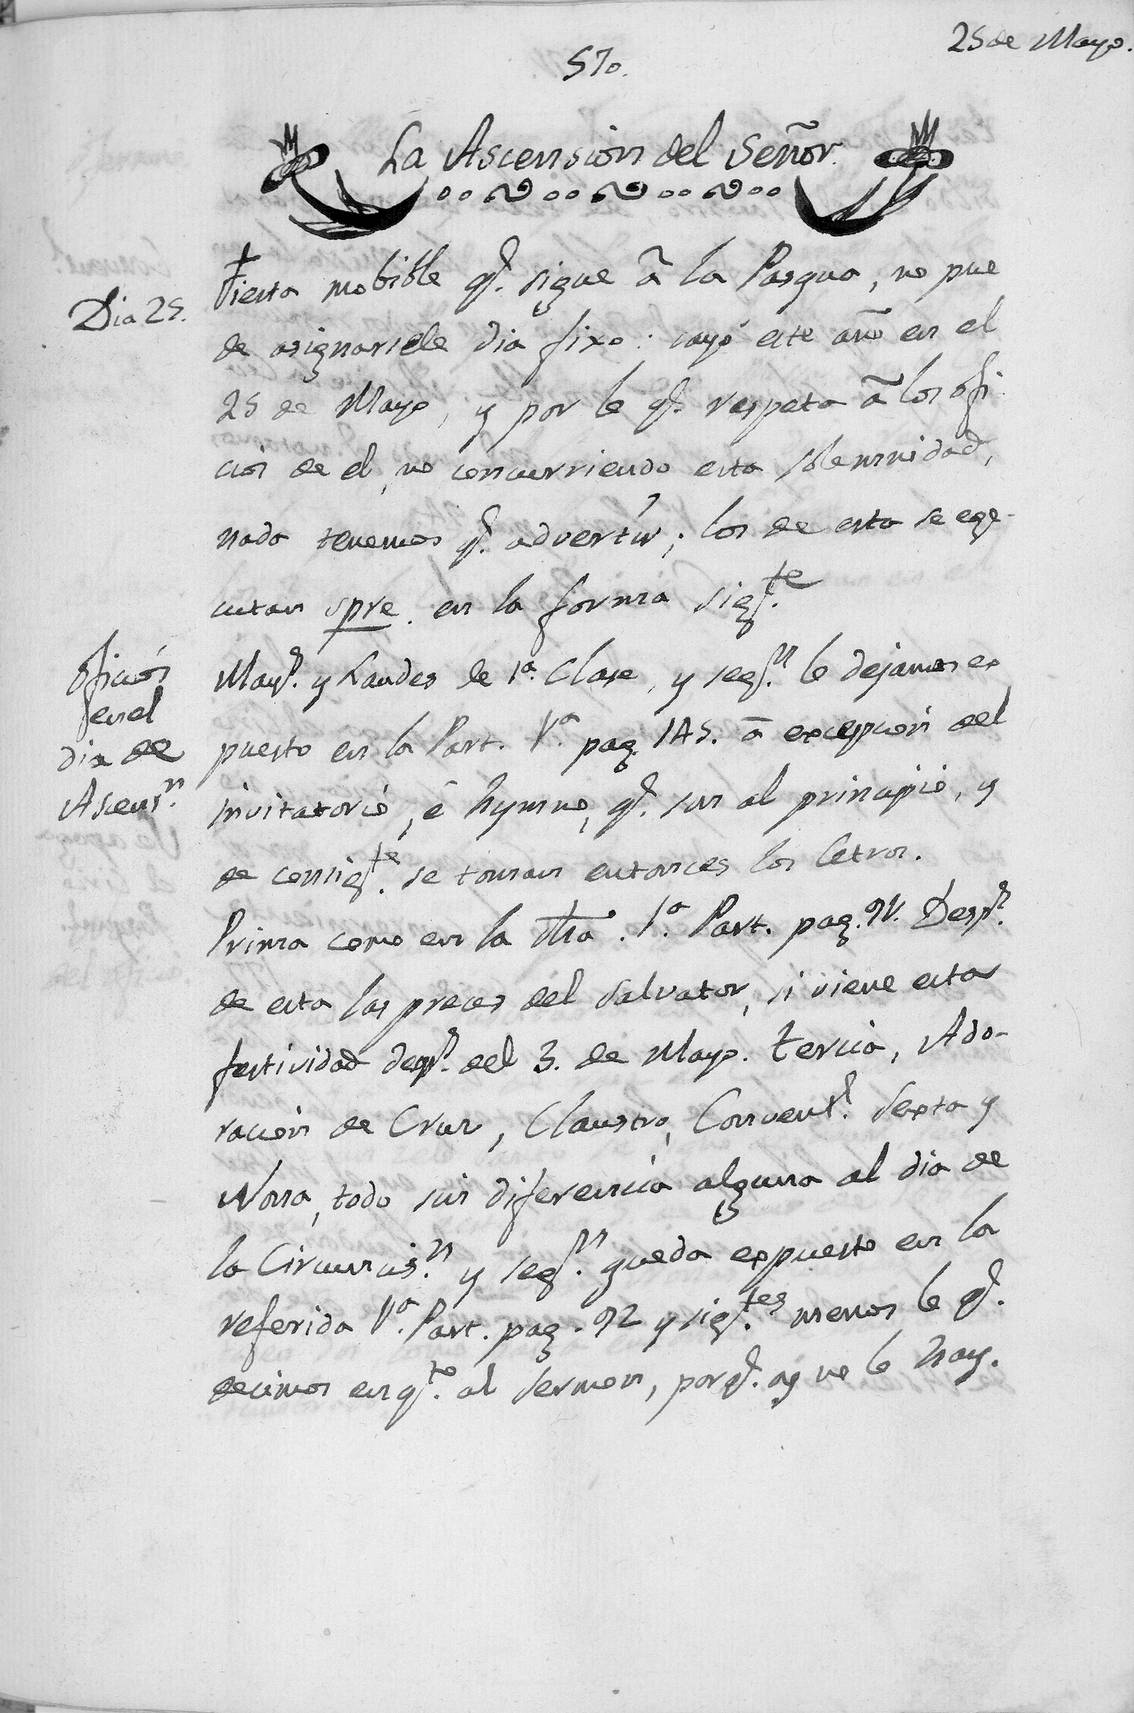 25 de Mayo.
570.
La Ascension del Señor.
Dia 25.
Fiesta mobible q.e sigue â la Pasqua, no pue
de asignarsele dia fixo: cayó este año en el
25 de Mayo, y por lo q.e respeta â los ofi
cios de el, no concurriendo esta solemnidad,
nada tenemos q.e advertir; los de esta se ege-
cutan spre. en la forma sig.te
Oficios
en el
dia de
Ascens.n
Mayt.s y Laudes de 1.a Clase, y seg.n lo dejamos ex
puesto en la Part. 1.a pag. 145. â excepcion del
invitatorio, é hymno, q.e son al principio, y
de consig.te se toman entonces los Cetros.
Prima como en la dha. 1.a Part. pag. 91. Desp.s
de esta las preces del Salvator, si viene esta
festividad desp.s del 3. de Mayo. Tercia, Ado-
racion de Cruz, Claustro, Convent.l Sexta y
Nona, todo sin diferencia alguna al dia de
la Circuncis.n y seg.n queda expuesto en la
referida 1.a Part. pag. 92 y sig.tes menos lo q.e
decimos en q.to al Sermon, porq.e oy no lo hay.